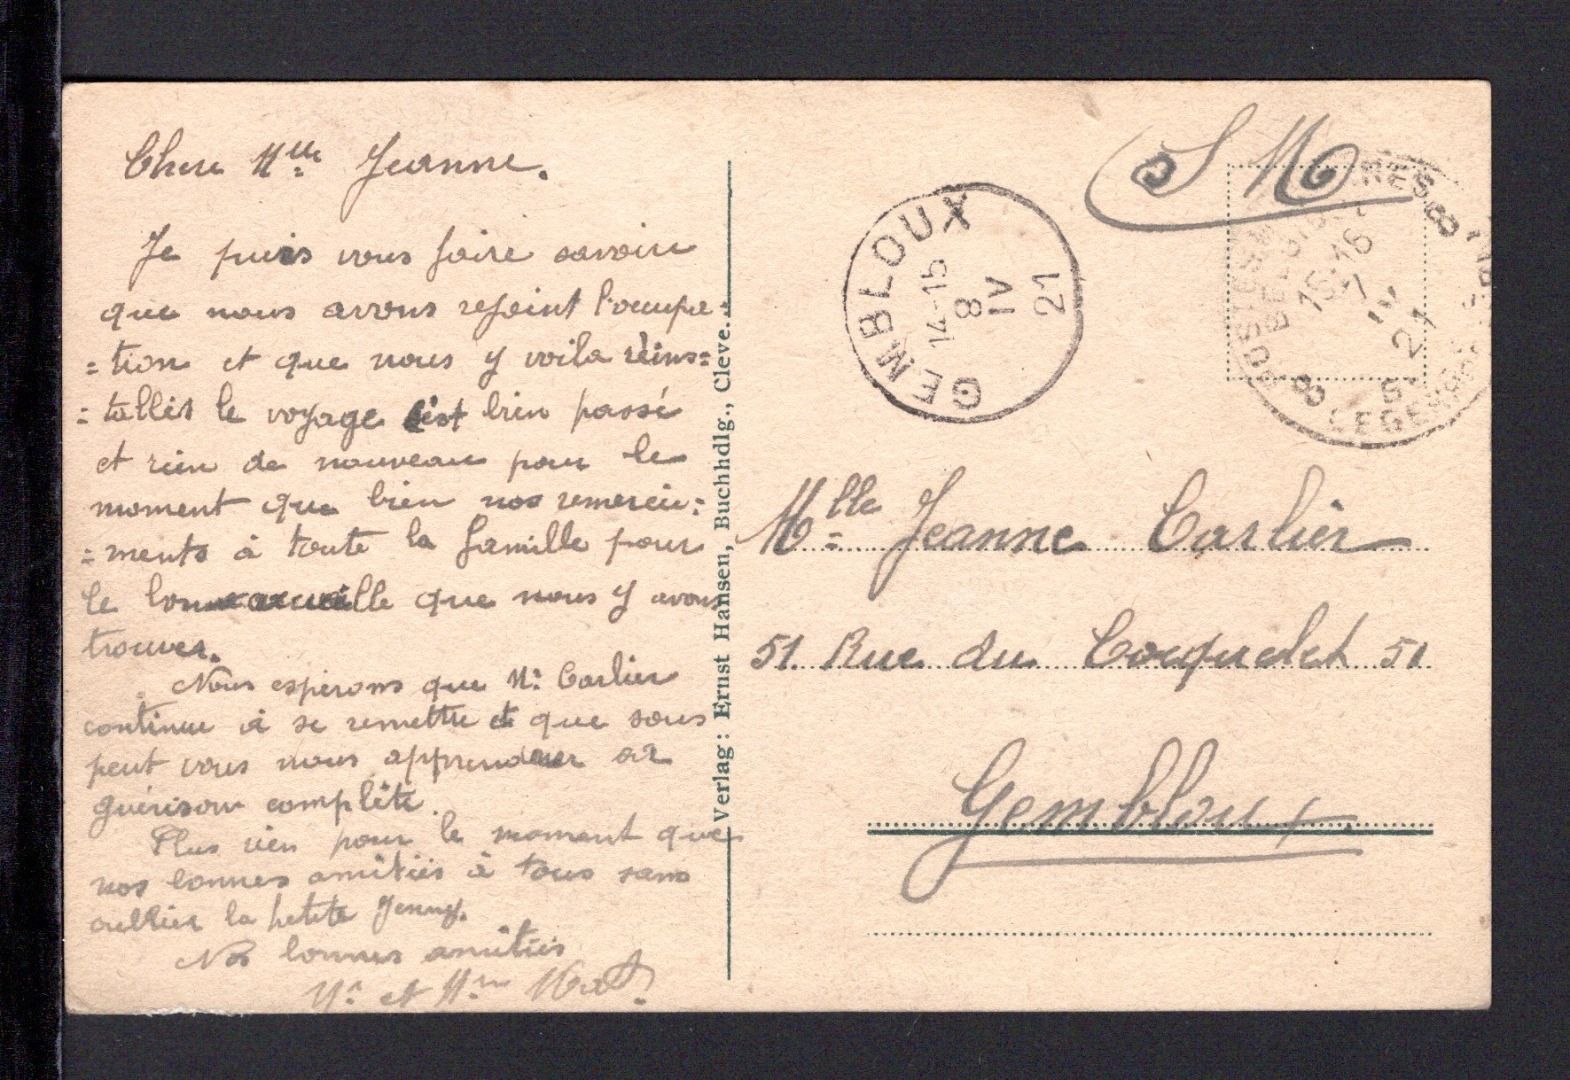 Chere Mlle Jeanne.
Je puis vous faire savoir
que nous avons rejoint l'occupa=
=tion et que nous y voila réins=
=tallés le voyage c'est bien passé
et rien de nouveau pour le
moment que bien nos remerciu=
=ments à toute la famille pour
le que nous y avons
trouver.
Nous espèrons que Mr Carlier
continue à se remettre et que sous
peut vous nous apprenderer sa
guérison complète.
Plus rien pour le moment que
nos bonnes amitiés à tous sans
oublier la petite Jenny.
Nos bonnes amitiés
Mr et Mme
Verlag: Ernst Hansen, Buchhdlg., Cleve.
S M
GEMBLOUX
14-15
8
IV
21
POSTES MILITAIRES
BELGIQUE
15-16
7
IV
21
5
LEGERPOSTERIJ
Mlle Jeanne Carlier
51. Rue du Cocquelet 51
Gembloux